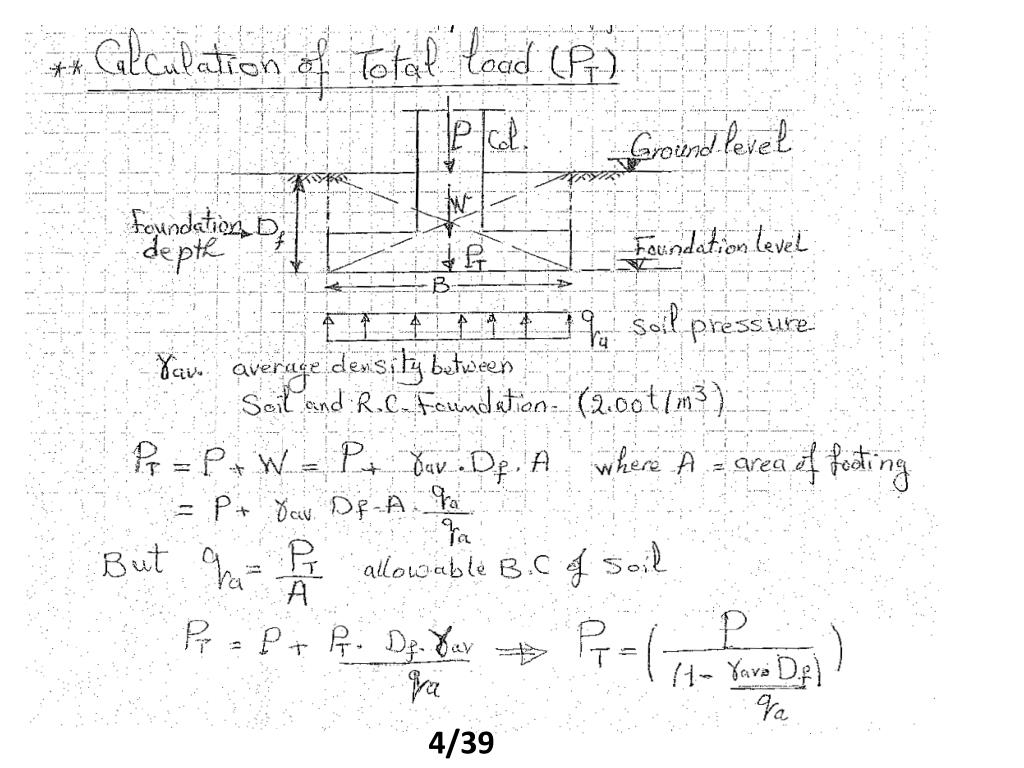 ** Calculation of Total load (P_T)
P Col.
Ground level
W
Foundation D_f
depth
P_T
Foundation level
B
q_a soil pressure
γav. average density between
Soil and R.C. Foundation. (2.00 t/m³)
P_T = P + W = P + γav . D_f . A where A = area of footing
= P + γav D_f . A . q_a/q_a
But q_a = P_T/A allowable B.C of Soil
P_T = P + P_T . D_f . γav/q_a ⇒ P_T = (P/(1 - γav . D_f/q_a))
4/39